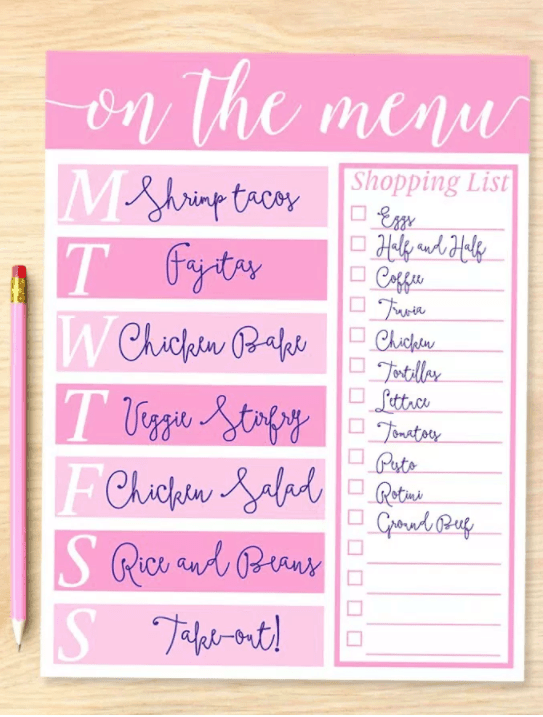 on the menu
M Shrimp tacos
T Fajitas
W Chicken Bake
T Veggie Stirfry
F Chicken Salad
S Rice and Beans
S Take-out!
Shopping List
Eggs
Half and Half
Coffee
Truvia
Chicken
Tortillas
Lettuce
Tomatoes
Pesto
Rotini
Ground Beef